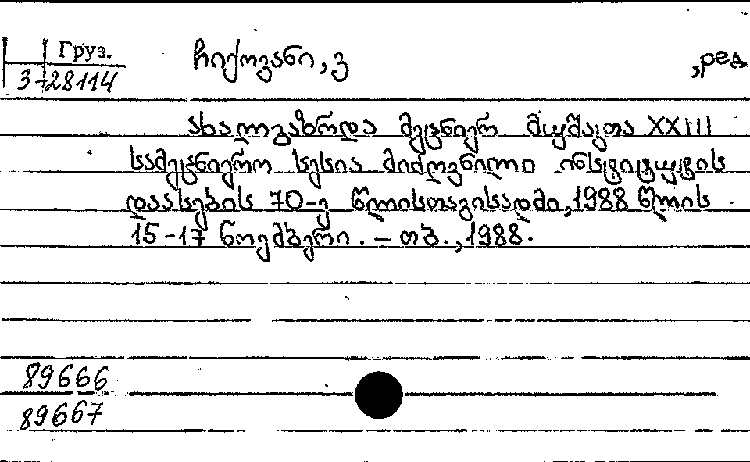 Груз.
3-28114
ჩიქოვანი, ვ
,ред
ახალგაზრდა მეცნიერ მუშაკთა XXIII
სამეცნიერო სესია მიძღვნილი ინსტიტუტის
დაასების 70-ე წლისთავისადმი, 1988 წლის
15-17 ნოემბერი. - თბ., 1988.
89666
89667